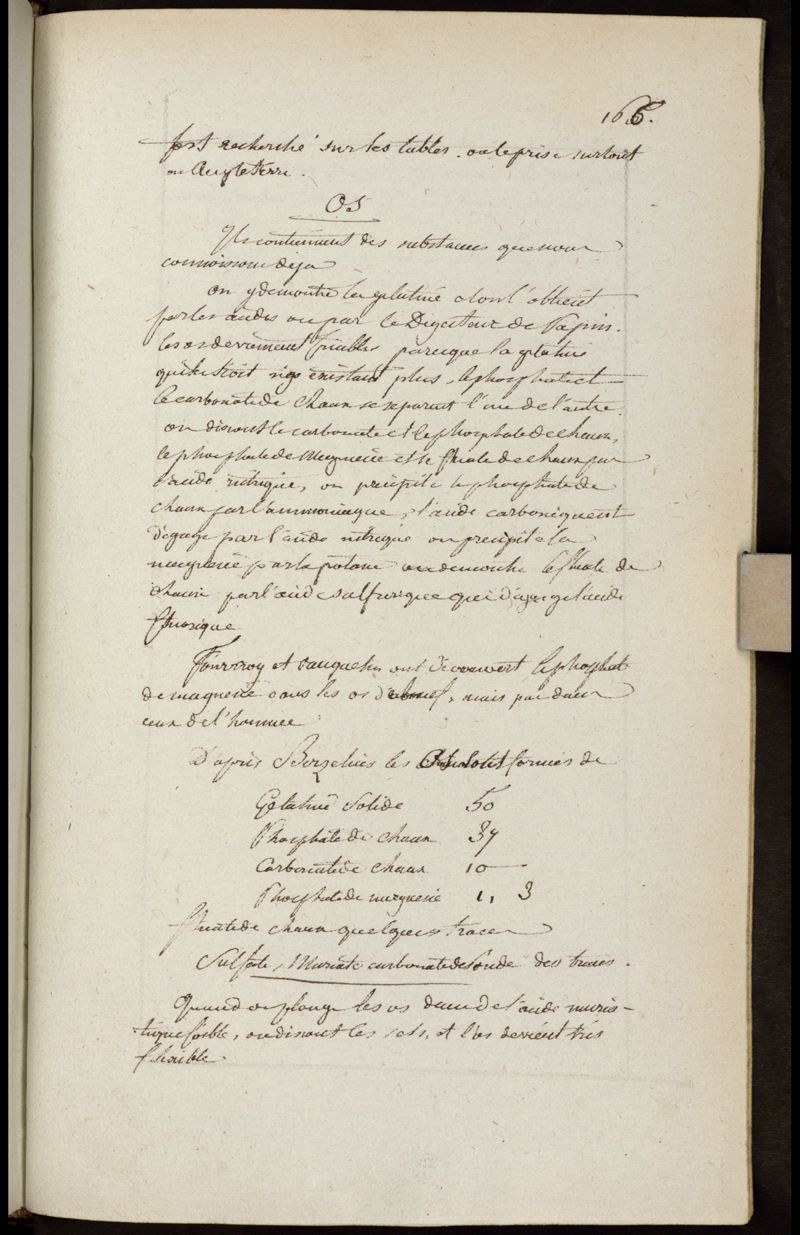 166.
fort recherché sur les tables. on le prise surtout
en Angleterre.
OS
Ils contiennent des substances que nous
connoissons deja
on y demontre la gelatine dont l'obtient
par les acides ou par le Digesteur de Papin.
les os deviennent friables parceque la gelatine
qui les lioit n'existant plus, le phosphate et
le carbonate de chaux se separent l'une de l'autre.
on dissout le carbonate et le phosphate de chaux,
le phosphate de Magnesie et le fluate de chaux par
l'acide nitrique, on precipite le phosphate de
chaux par l'ammoniaque, l'acide carbonique est
degagé par l'acide nitrique on precipite la
magnesie par la potasse on demontre le fluate de
chaux par l'acide sulfurique qui degage l'acide
fluorique
Fourcroy et Vauquelin ont decouvert le phosphate
de magnesie dans les os d', mais pas dans
ceux de l'homme
D'après Berzelius les Os sont formés de
Gelatine solide 50
Phosphate de chaux 37
Carbonate de chaux 10
Phosphate de magnesie 1, 3
fluate de chaux quelques traces
Sulfate, Muriate carbonate de Soude des traces.
Quand on plonge les os dans de l'acide muria-
tique foible, on dissout les sels, et l'os devient très
flexible.